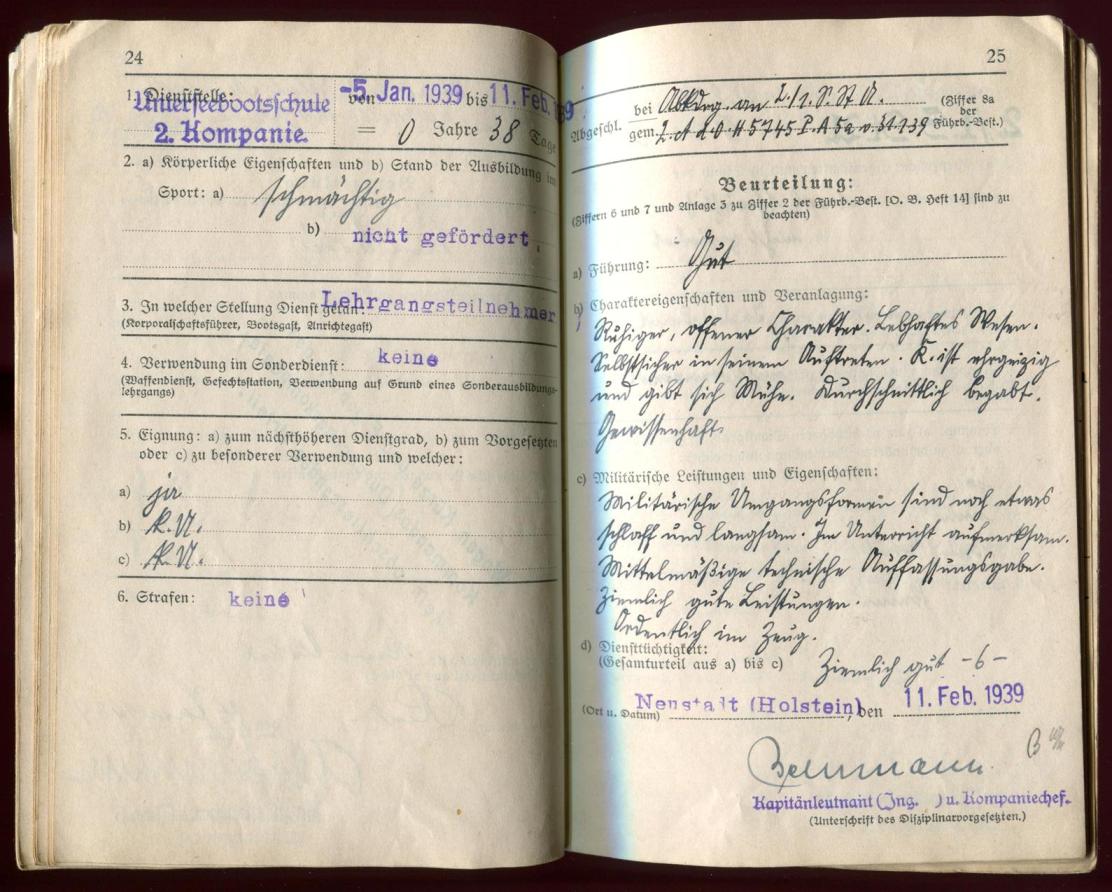 24
1. Dienststelle: Unterseebootsschule von -5. Jan. 1939 bis 11. Feb. 1939
2. Kompanie. = 0 Jahre 38 Tage
2. a) Körperliche Eigenschaften und b) Stand der Ausbildung im
Sport: a) schmächtig
b) nicht gefördert.
3. In welcher Stellung Dienst getan: Lehrgangsteilnehmer
(Korporalschaftsführer, Bootsgast, Anrichtegast)
4. Verwendung im Sonderdienst: keine
(Waffendienst, Gefechtsstation, Verwendung auf Grund eines Sonderausbildungs-
lehrgangs)
5. Eignung: a) zum nächsthöheren Dienstgrad, b) zum Vorgesetzten
oder c) zu besonderer Verwendung und welcher:
a) ja
b) k.U.
c) k.U.
6. Strafen: keine
25
Abgeschl. bei Abkdrg. an 2./1. S. St. A. (Ziffer 8a
der
gem. 2. A d O H 5745 P. A 5a v. 31.1.39 Führb.-Best.)
Beurteilung:
(Ziffern 6 und 7 und Anlage 3 zu Ziffer 2 der Führb.-Best. [O. B. Heft 14] sind zu
beachten)
a) Führung: Gut
b) Charaktereigenschaften und Veranlagung:
Ruhiger, offener Charakter. Lebhaftes Wesen.
Selbstsicher in seinem Auftreten. K. ist ehrgeizig
und gibt sich Mühe. Durchschnittlich begabt.
Gewissenhaft.
c) Militärische Leistungen und Eigenschaften:
Militärische Umgangsformen sind noch etwas
schlaff und langsam. Im Unterricht aufmerksam.
Mittelmäßige technische Auffassungsgabe.
Ziemlich gute Leistungen.
Ordentlich im Zeug.
d) Diensttüchtigkeit:
(Gesamturteil aus a) bis c) Ziemlich gut -6-
(Ort u. Datum) Neustadt (Holstein), den 11. Feb. 1939
Kapitänleutnant (Ing. ) u. Kompaniechef.
(Unterschrift des Disziplinarvorgesetzten.)